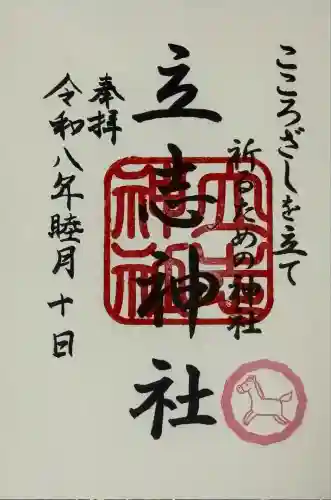 こころざしを立て
祈るための神社
立志神社
奉拝
令和八年睦月十日
立志神社